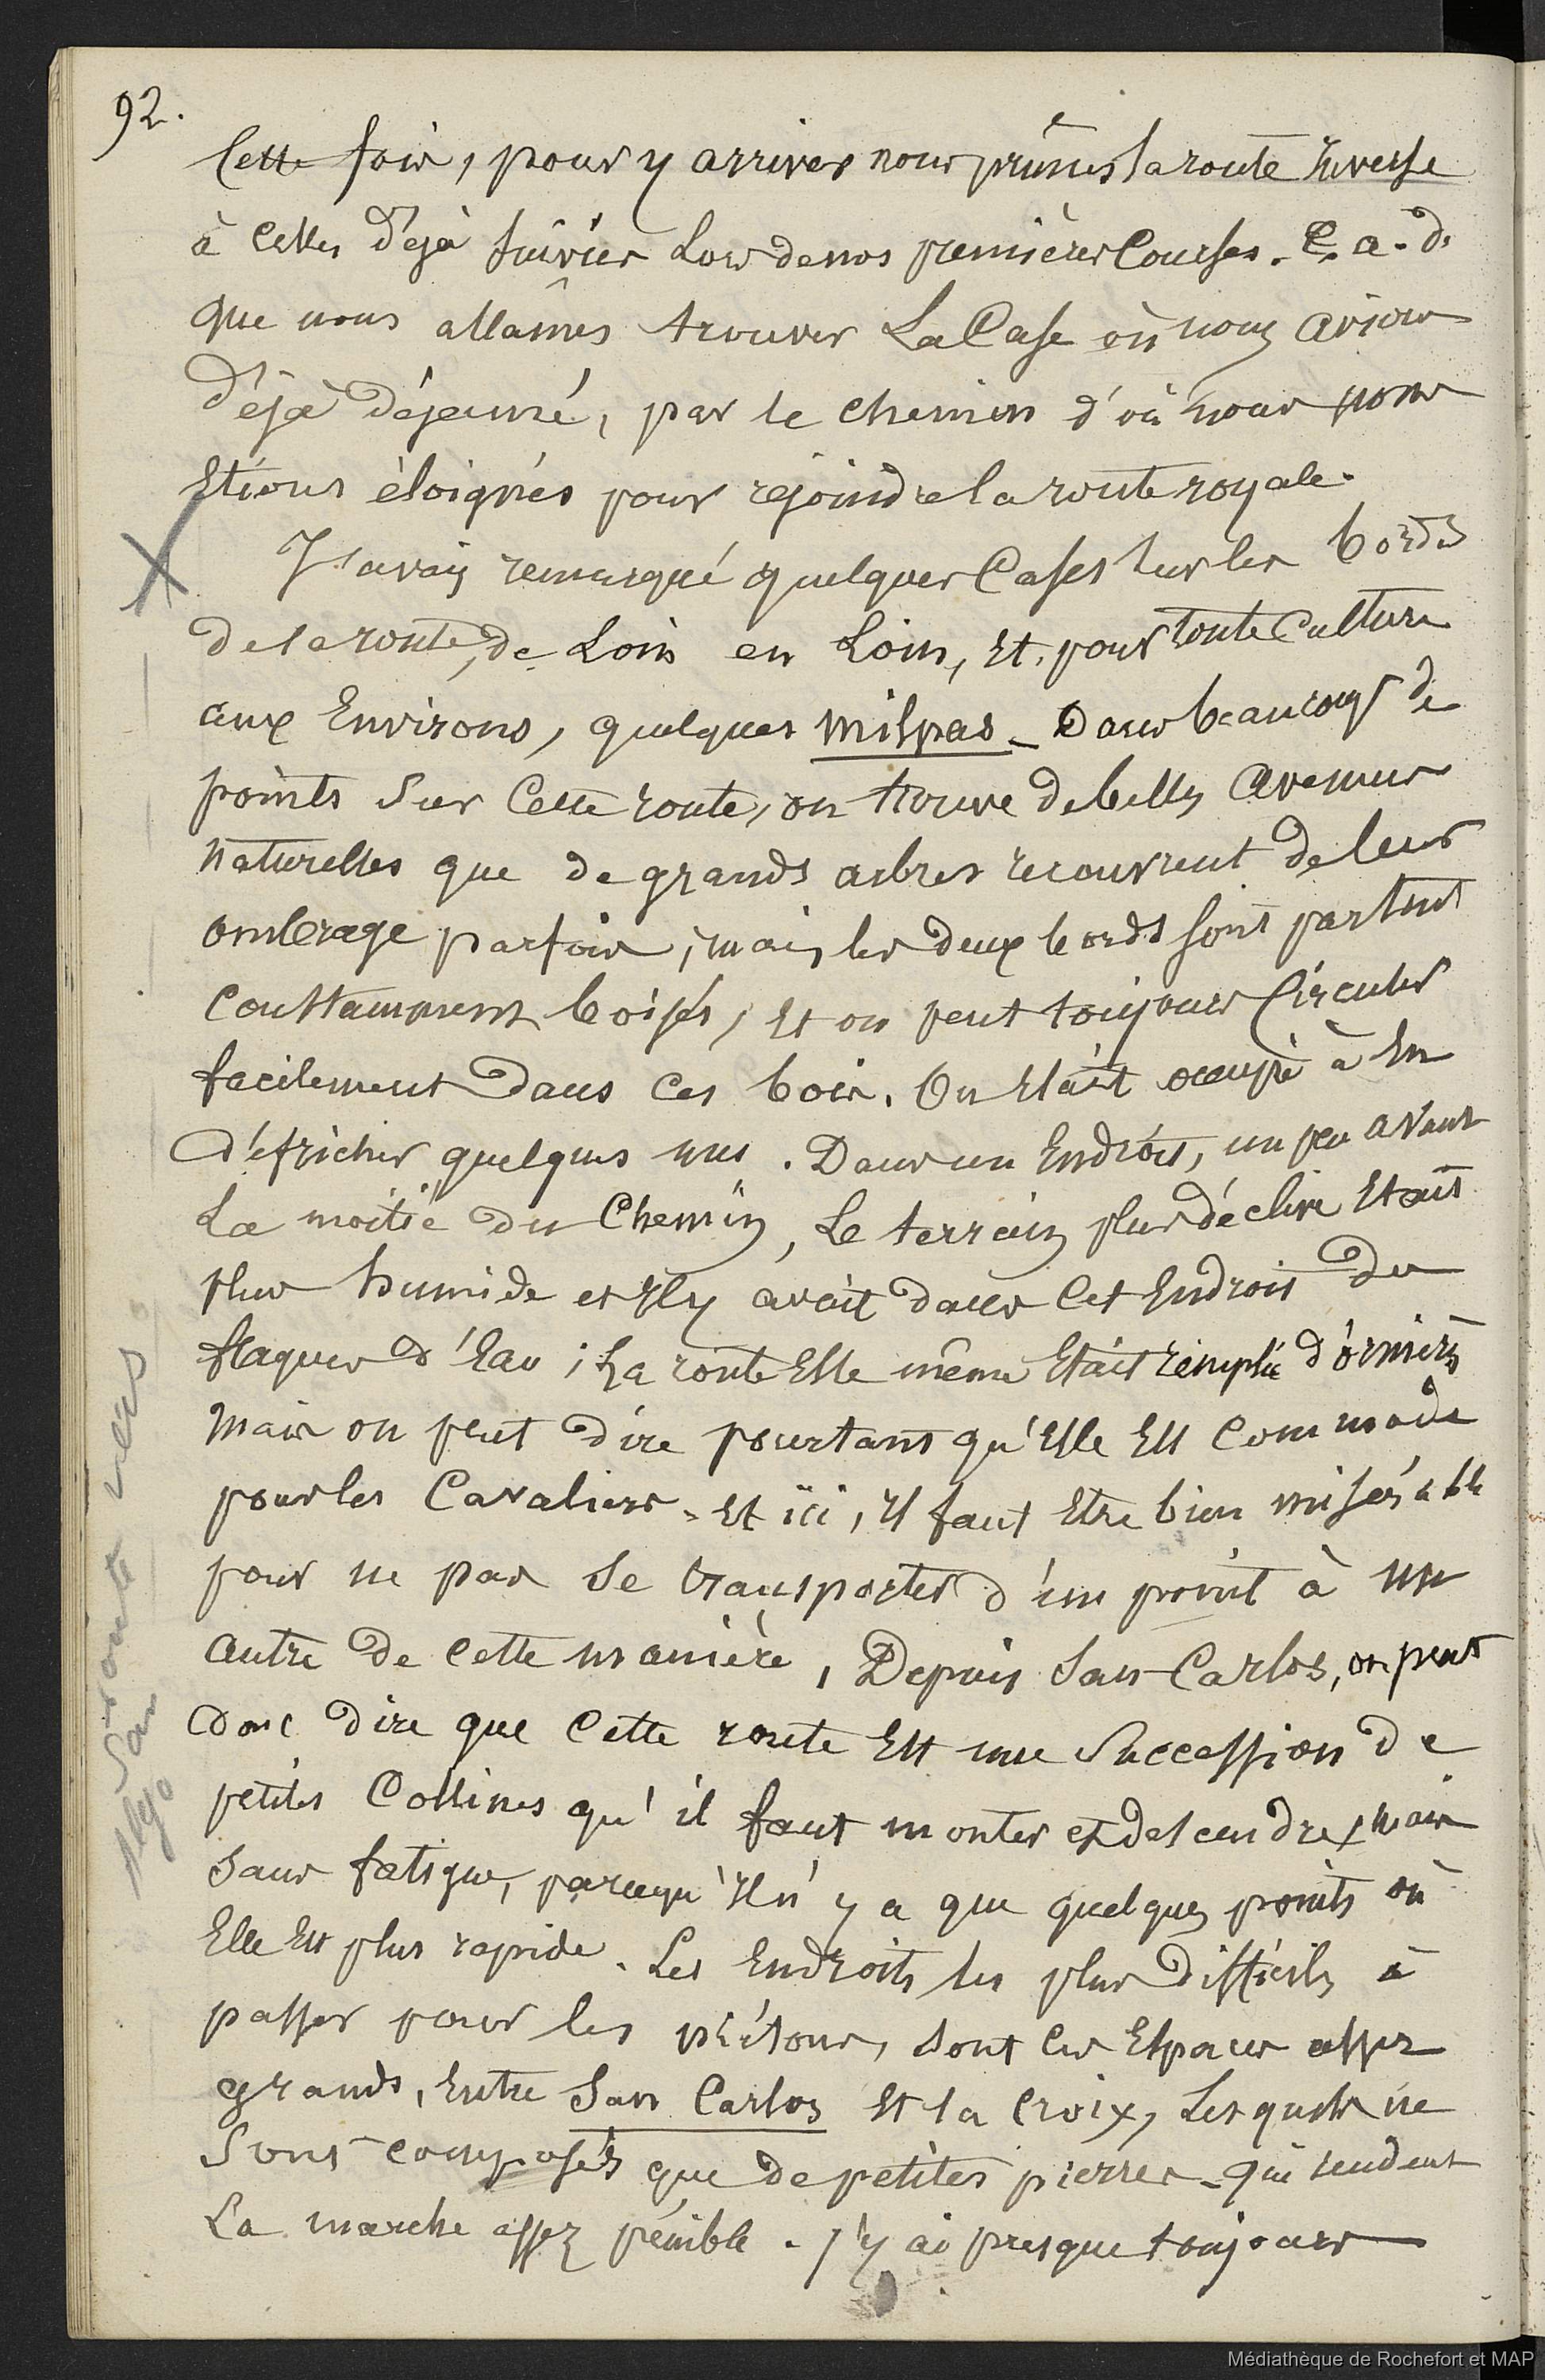 92.
Cette fois, pour y arriver nous prîmes la route inverse
à celles déjà suivies Lors de nos premières Courses. C. a. d.
que nous allâmes trouver La Case où nous avions
déjà déjeuné, par le chemin d'où nous nous
Etions éloignés pour rejoindre la route royale.
J'avais remarqué quelques Cases sur les bords
de la route, de Loin en Loin, Et, pour toute Culture
aux Environs, quelques milpas_ Dans beaucoup de
points Sur Cette route, on trouve de belles avenues
naturelles que de grands arbres recouvrent de leur
ombrage parfois ; mais les deux bords sont partout
Constamment boisés, Et on peut toujours Circuler
facilement dans ces bois. On Etait occupé à En
défricher quelques uns. Dans un Endroit, un peu avant
La moitié du Chemin, Le terrain plus déclive Etait
plus humide et Il y avait dans Cet Endroit des
flaques d'Eau ; La route Elle même Etait remplie d'ornières
Mais on peut dire pourtant qu'Elle Est Commode
pour les Cavaliers. Et ici, Il faut Etre bien misérable
pour ne pas se transporter d'un point à un
autre de cette manière. Depuis San-Carlos, on peut
donc dire que Cette route Est une Succession de
petites Collines qu'il faut monter et descendre, mais
Sans fatigue, parcequ'Il n'y a que quelques points où
Elle Est plus rapide. Les Endroits les plus difficiles à
passer pour les piétons, sont les Espaces assez
grands, Entre San Carlos Et la Croix, Lesquels ne
Sont composés que de petites pierres_ qui rendent
La marche assez pénible. J'y ai presque toujours
route vers
San
Médiathèque de Rochefort et MAP